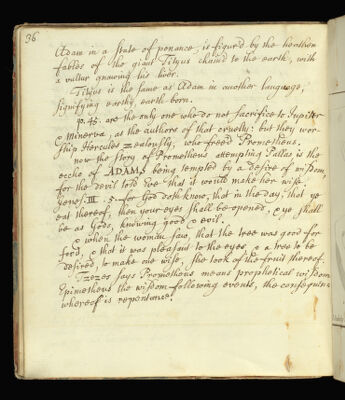 36
Adam in a state of penance, is figur'd by the heathen
fables of the giant Tityus chaind to the earth, with
a vultur gnawing his liver.
Tityus is the same as Adam in another language,
signifying earthy, earth born.
p. 45. are the only one who do not sacrifice to Jupiter
& Minerva, as the authors of that cruelty; but they wor
ship Hercules zealously, who freed Prometheus.
now the story of Prometheus attempting Pallas is the
eccho of ADAMS being tempted by a desire of wisdom,
for the devil told Eve that it would make her wise.
Genes. III. 5. for God doth know, that in the day, that ye
eat thereof, then your eyes shall be opened, & ye shall
be as Gods, knowing good & evil.
& when the woman saw, that the tree was good for
food, & that it was pleasant to the eyes, & a tree to be
desired, to make one wise, she took of the fruit thereof.
Tzezes says Prometheus means prophetical wisdom
Epimetheus the wisdom following events, the consequence
whereof is repentance.